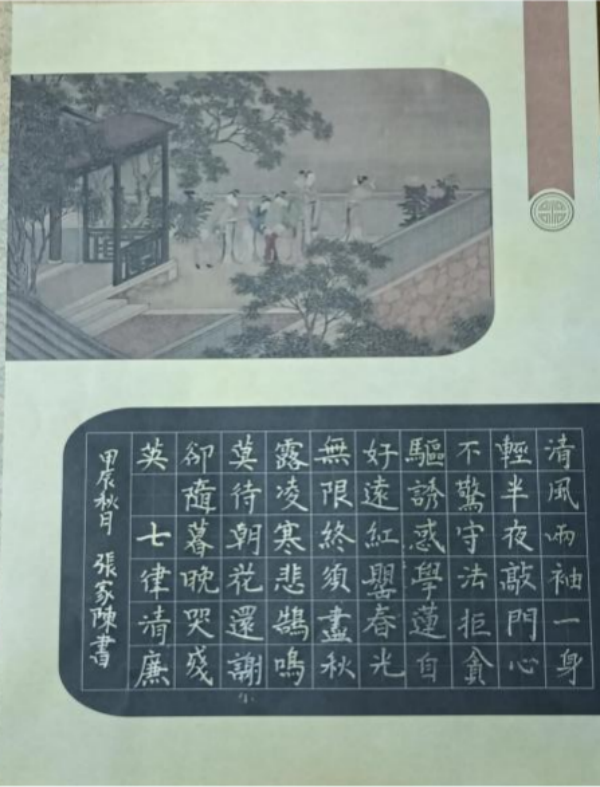 清風兩袖一身
輕半夜敲門心
不驚守法拒貪
驅誘惑學蓮自
好遠紅罌春光
無限終須盡秋
露凌寒悲鵠鳴
莫待朝花還謝
卻隨暮晚哭殘
英 七律清廉
甲辰秋月 張家陳書